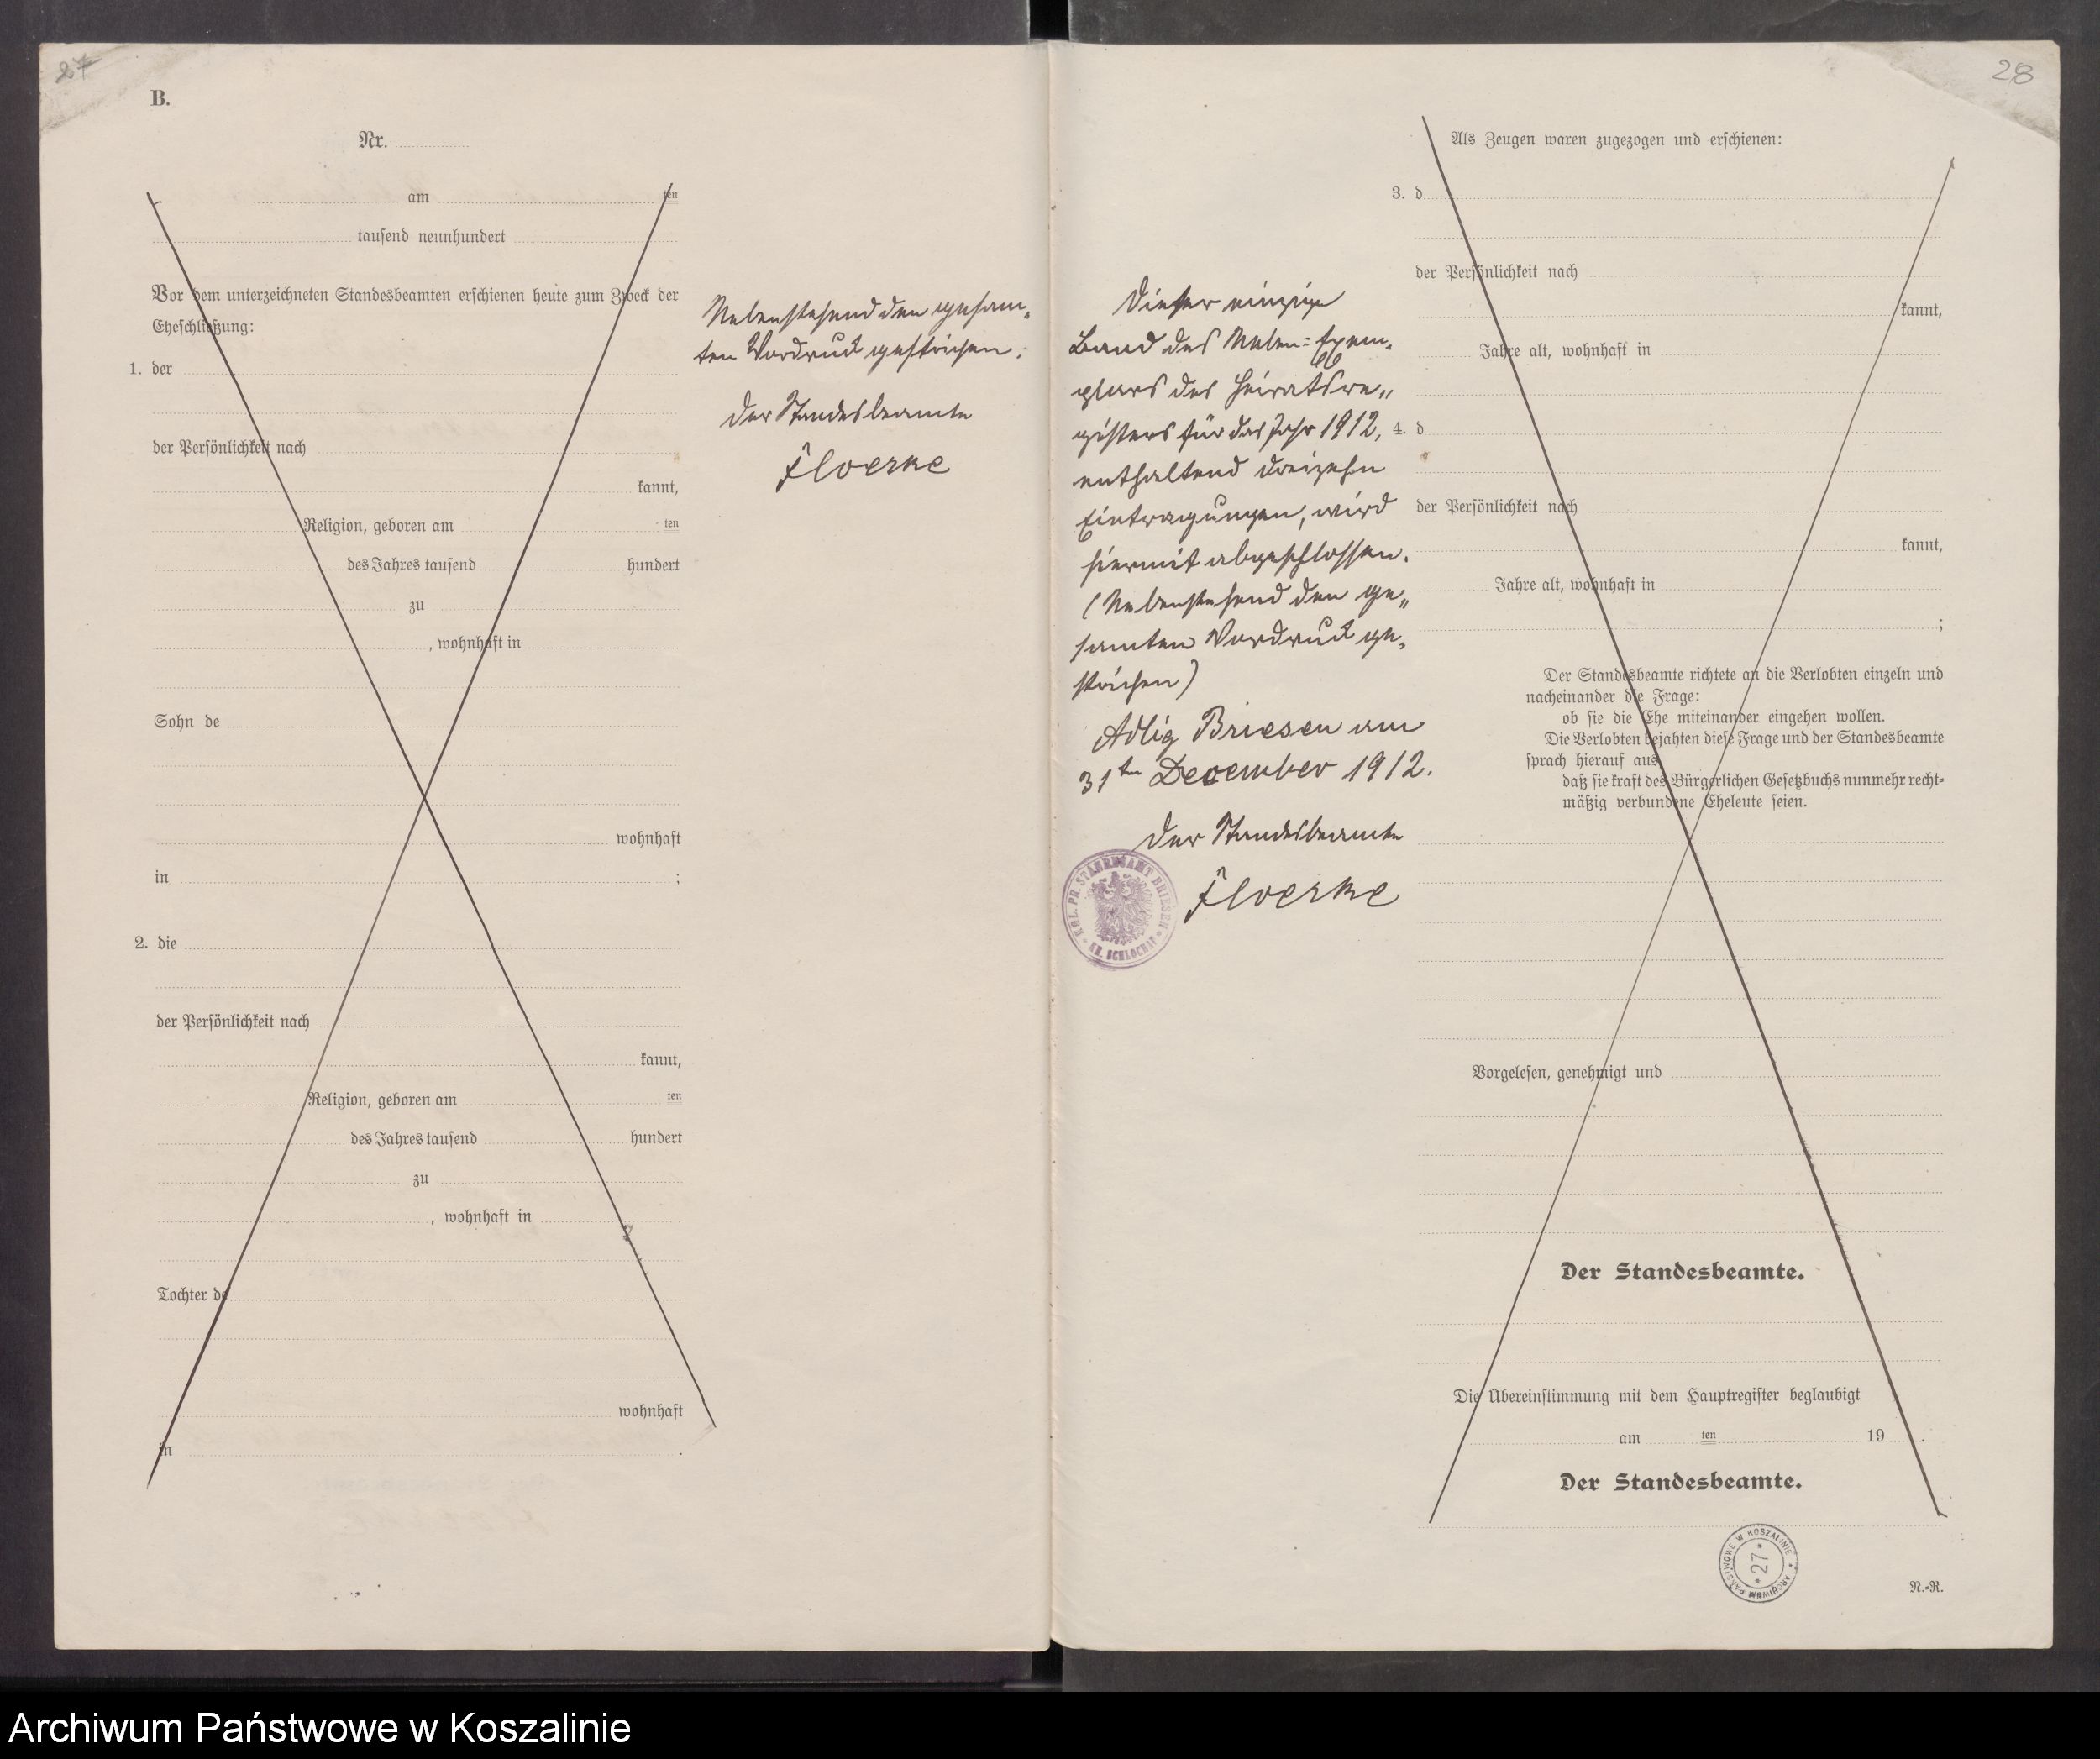 27
B.
Nr.
am ten
tausend neunhundert
Vor dem unterzeichneten Standesbeamten erschienen heute zum Zweck der
Eheschließung:
1. der
der Persönlichkeit nach
kannt,
Religion, geboren am ten
des Jahres tausend hundert
zu
, wohnhaft in
Sohn de
wohnhaft
in ;
2. die
der Persönlichkeit nach
kannt,
Religion, geboren am ten
des Jahres tausend hundert
zu
, wohnhaft in
Tochter de
wohnhaft
in .
Nebenstehend den gesam-
ten Vordruck gestrichen.
Der Standesbeamte
Floerke
28
Dieser einzige
Band des Neben-Exem-
plars des Heiratsre-
gisters für das Jahr 1912,
enthaltend dreizehn
Eintragungen, wird
hiermit abgeschlossen.
(Nebenstehend den ge-
samten Vordruck ge-
strichen)
Adlig Briesen am
31ten December 1912.
Der Standesbeamte
Floerke
KGL. PR. STANDESAMT BRIESEN
KR. SCHLOCHAU
Als Zeugen waren zugezogen und erschienen:
3. d
der Persönlichkeit nach
kannt,
Jahre alt, wohnhaft in
4. d
der Persönlichkeit nach
kannt,
Jahre alt, wohnhaft in
;
Der Standesbeamte richtete an die Verlobten einzeln und
nacheinander die Frage:
ob sie die Ehe miteinander eingehen wollen.
Die Verlobten bejahten diese Frage und der Standesbeamte
sprach hierauf aus,
daß sie kraft des Bürgerlichen Gesetzbuchs nunmehr recht-
mäßig verbundene Eheleute seien.
Vorgelesen, genehmigt und
Der Standesbeamte.
Die Übereinstimmung mit dem Hauptregister beglaubigt
am ten 19 .
Der Standesbeamte.
ARCHIWUM PAŃSTWOWE W KOSZALINIE
* 27 *
N.-R.
Archiwum Państwowe w Koszalinie